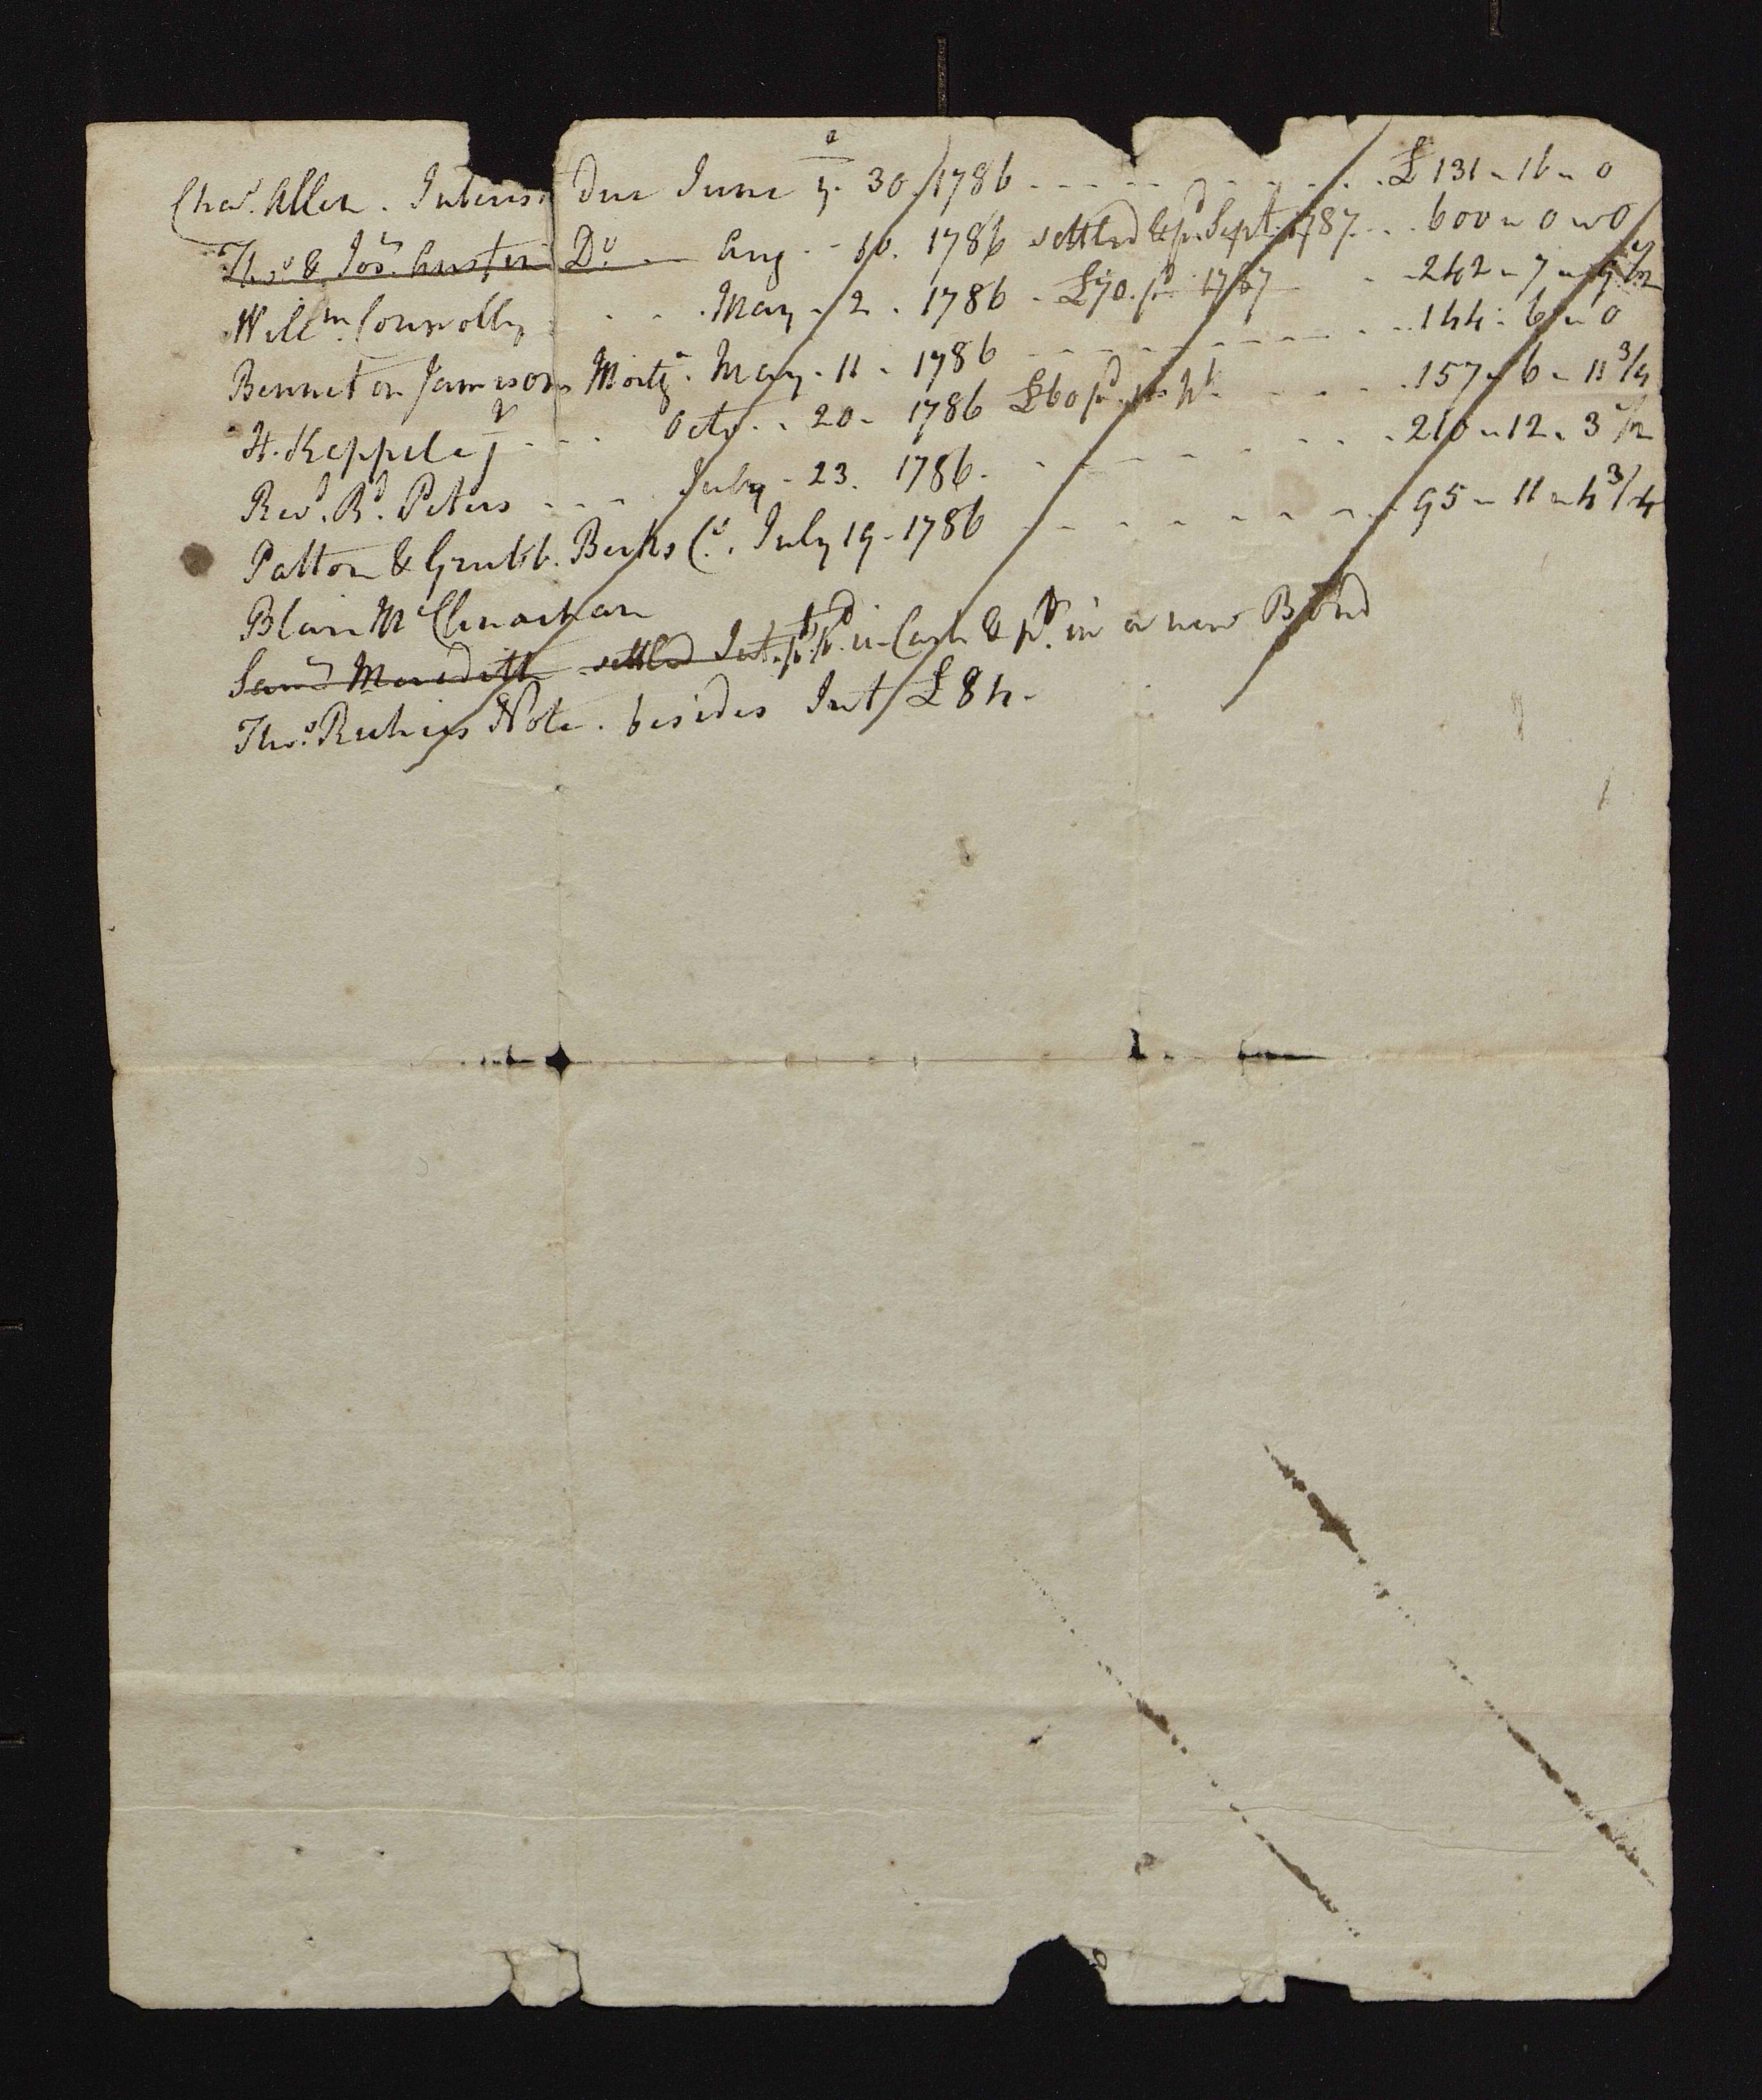 Chas. Allen. Interest Due June 30. 1786 - - - - - £131 - 16 - 0
Thos. & Jos. Austin Do. - Aug. - 10. 1786 settled & pd. Sept. 1787 - - 600 - 0 - 0
Willm. Connolly - - - May - 2. 1786 - £70. pd. 1787 - 242 - 7 - 9 1/2
Bennet on Jamison's Mortg. May - 11 - 1786 - - - - 144 - 6 - 0
H. Keppele Jr - - - Octr. - 20 - 1786 £60 pd. - - - 157 - 6 - 11 3/4
Revd. Rd. Peters - - - July - 23. 1786 - - - - - 210 - 12 - 3 1/2
Patton & Grubb. Berks Co. July 19 - 1786 - - - - - 95 - 11 - 4 3/4
Blair McClenachan
Saml. Meredith settled Int. pt. pd. in Cash & pt. in a new Bond
Thos. Note. besides Int £84 -